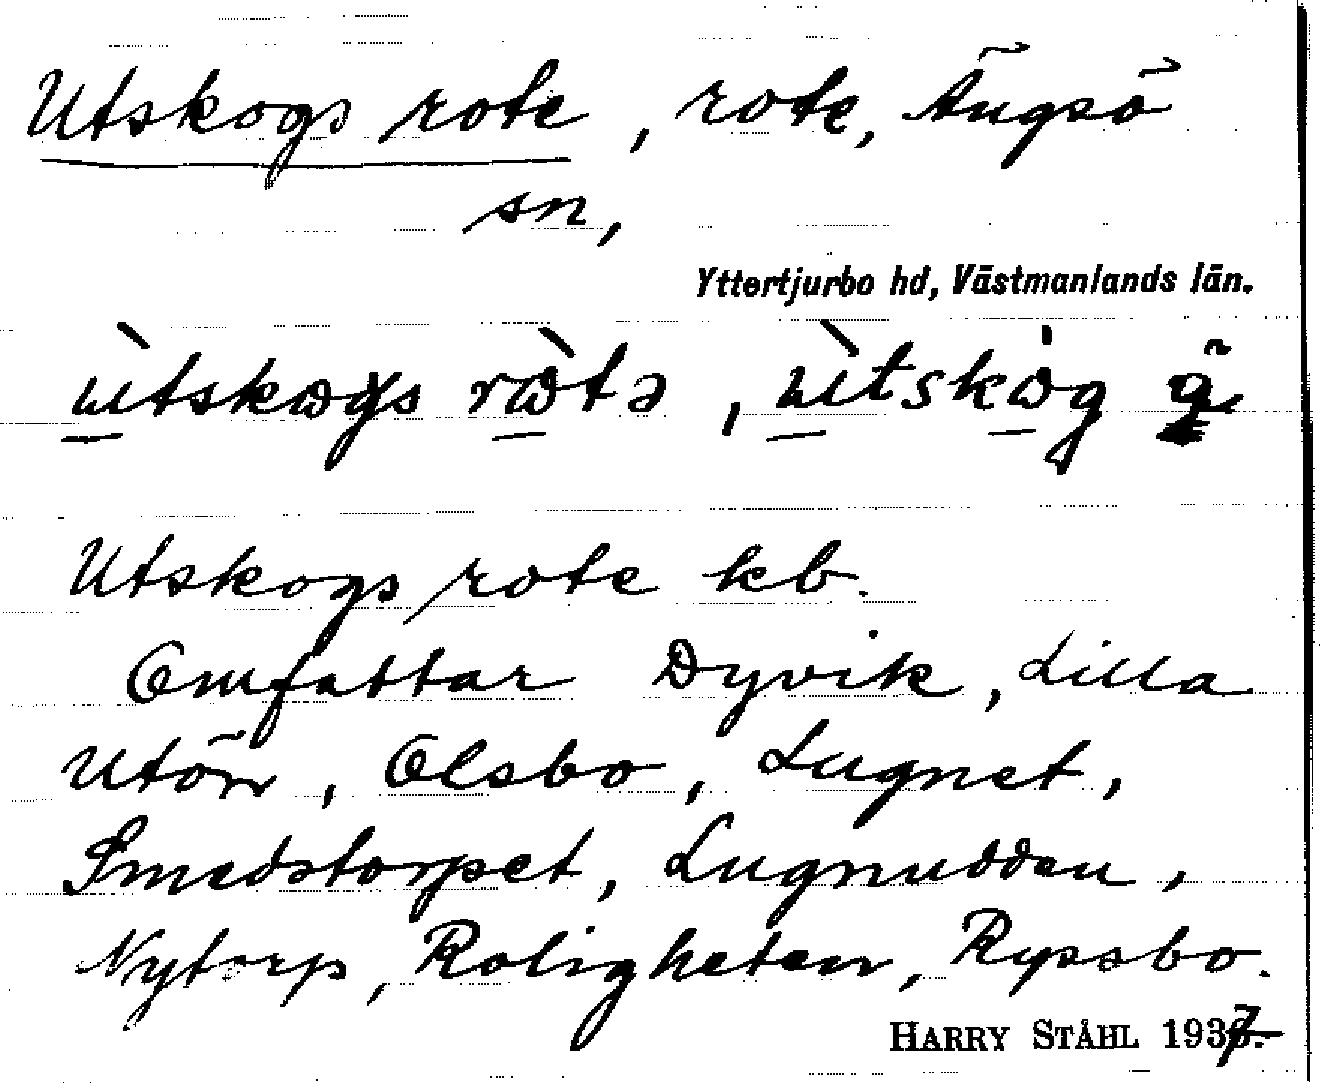 Utskogs rote, rote, Ängsö
sn,
Yttertjurbo hd, Västmanlands län.
ùtskogs ròtə, ùtskòg
Utskogs rote kb.
Omfattar Dyvik, Lilla
Utörr, Olsbo, Lugnet,
Smedstorpet, Lugnudden,
Nytorp, Roligheten, Ryssbo.
HARRY STÅHL 1937.